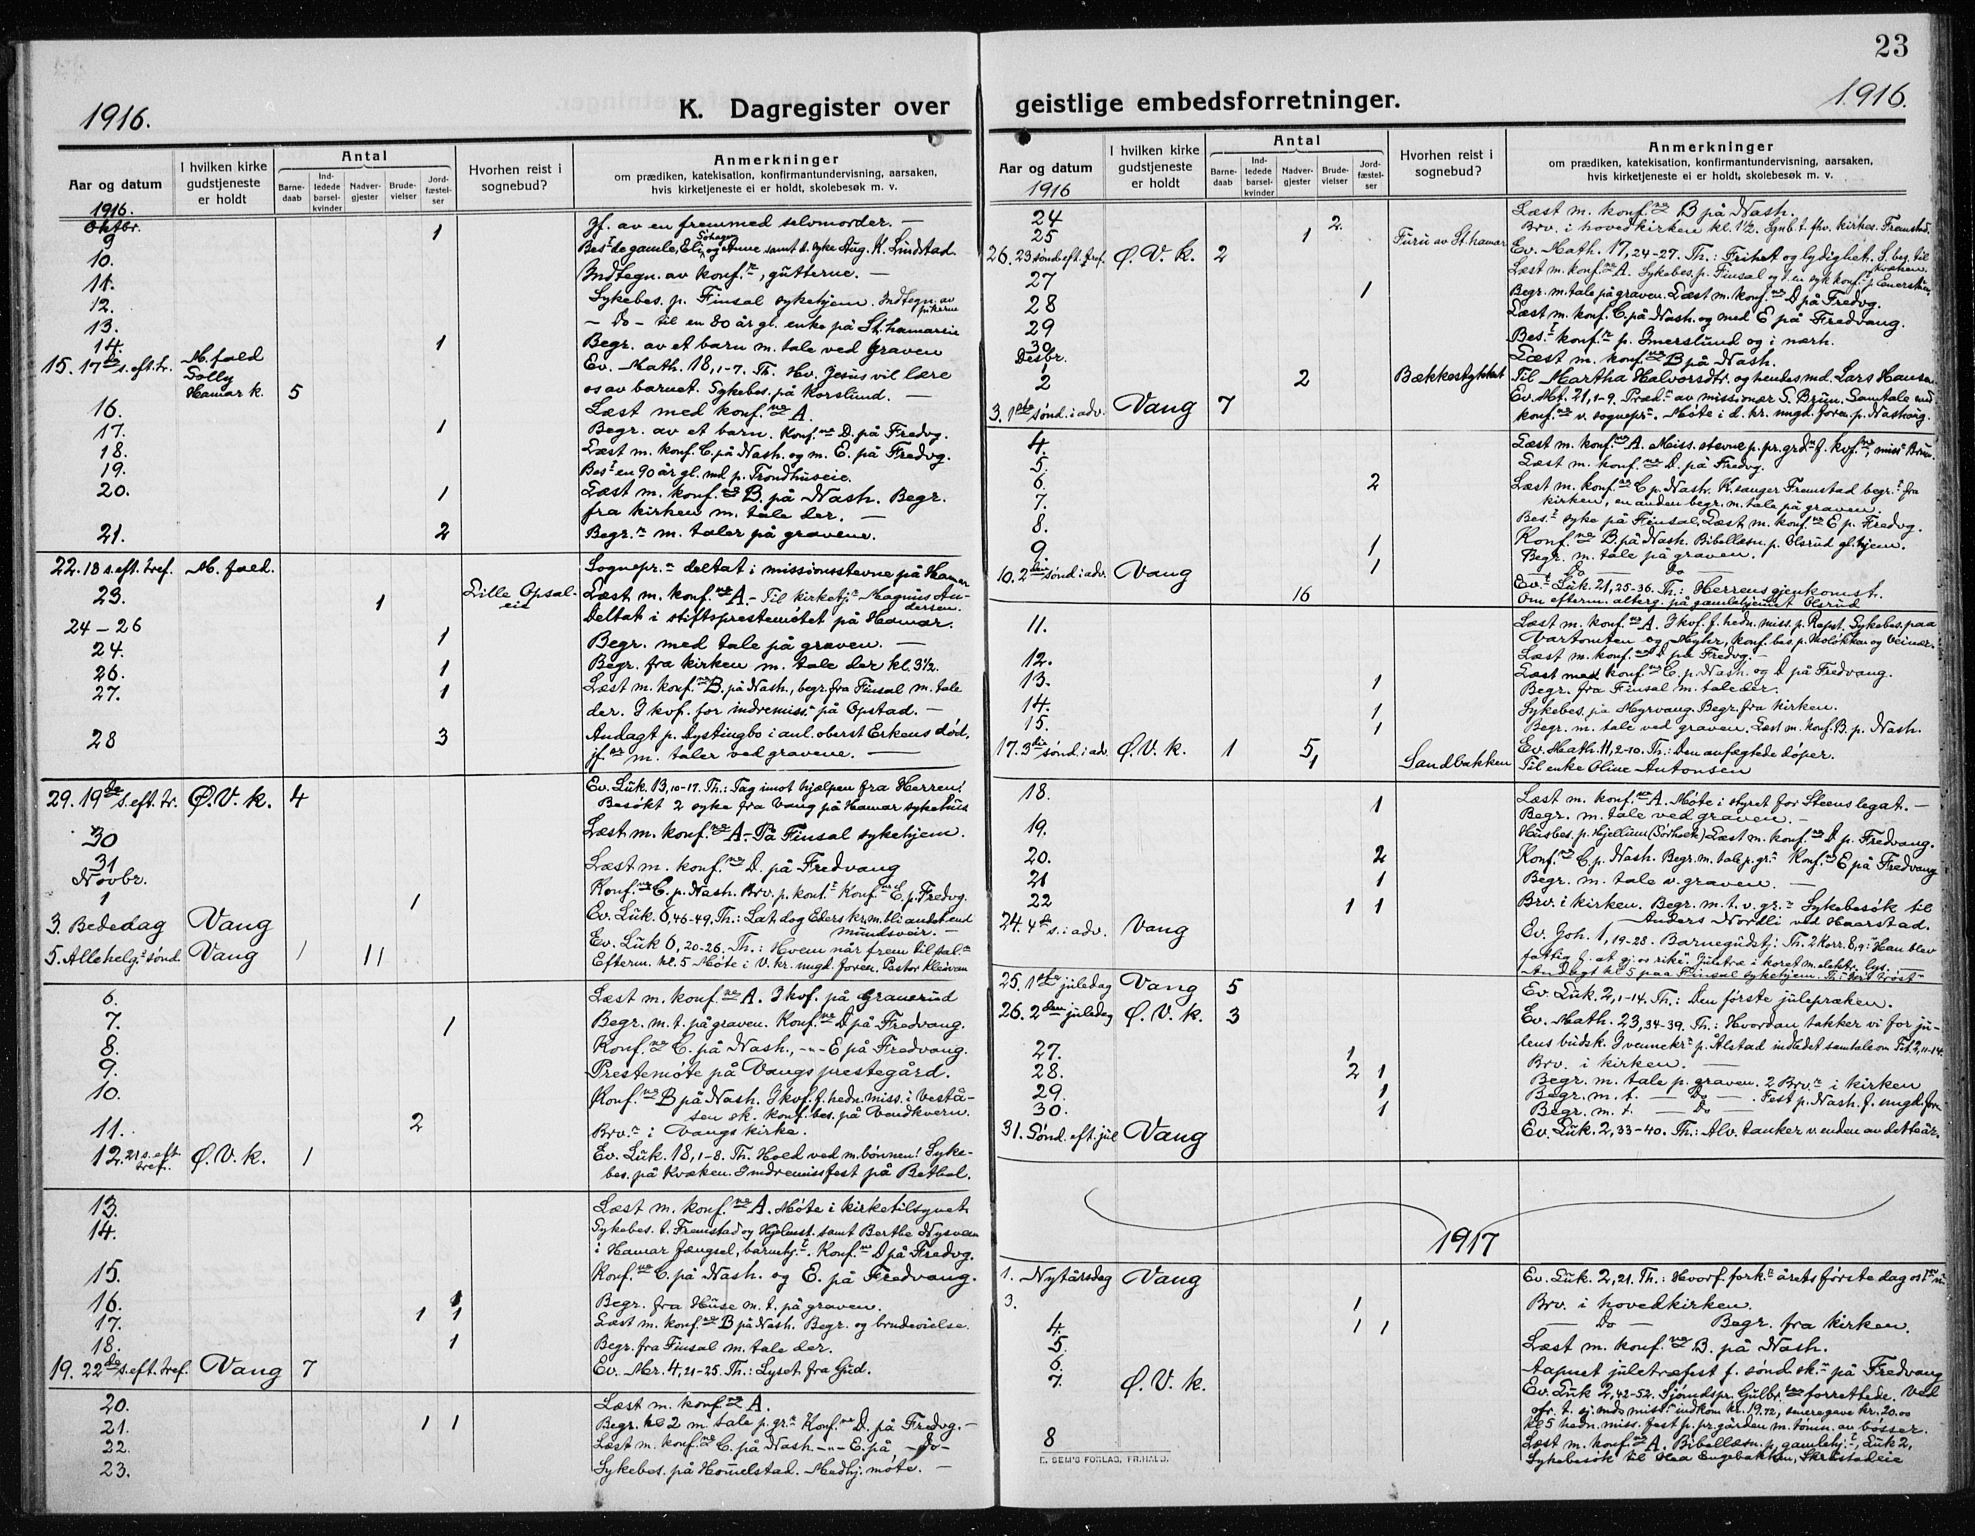 1916.
K. Dagregister over
Aar og datum
I hvilken kirke gudstjeneste er holdt
Antal
Barnedaab
Indledede barselkvinder
Nadvergjester
Brudevielser
Jordfæstelser
Hvorhen reist i sognebud?
Anmerkninger
om prædiken, katekisation, konfirmantundervisning, aarsaken,
hvis kirketjeneste ei er holdt, skolebesøk m. v.
1916.
Oktbr.
9 1 Jf. av en fremmed selvmorder. —
10. Bes.t de gamle, Eli og Anne samt d. syke Aug. K. Lundstad
11. Indtegn. av konf.r, gutterne. —
12. Sykebes. p. Finsal sykehjem. Indtegn. av pikerne
13. — Do — til en 80 år gl. enke på St. hamareie
14. 1 Begr. av et barn m. tale ved graven
15. 17de s. eft. tr. M. fald Ev. Math. 18, 1-7. Th. Hv. Jesus vil lære
Hamar k. 5 os av barnet. Sykebes. på Korslund. —
16. Læst med konf.ne A.
17. 1 Begr. av et barn. Konf.ne D. på Fredvg.
18. Læst m. konf. C. på Nash. og m. E. på Fredvg.
19. Bes.t en 90 år gl. md p. Trondhuseie.
20. 1 Læst m. konf.ne B. på Nash. Begr.
fra kirken m. tale der. —
21. 2 Begr.r m. taler på gravene.
22. 18 s. eft. tref. M. fald. Sognepr.n deltat i missionsstevne på Hamar
23. 1 Lille Opsaleie Læst m. konf.ne A. — Til kirketj.r Magnus Andersen.
24-26 Deltak i stiftsprestemötet på Hamar.
24. 1 Begr. med tale på graven. —
26. 1 Begr. fra kirken m. tale der kl. 3½.
27. 1 Læst m. konf.ne B. på Nash., begr. fra Finsal m. tale
der. I kvf. for indremiss.n på Opstad. —
28 3 Andagt p. Dystingbo i anl. oberst Erkens död,
jf.er m. taler ved gravene. —
29. 19de s. eft. tr. Ø. V. k. 4 Ev. Luk. 13, 10-17. Th.: Tag imot hjælpen fra Herren!
Besökt 2 syke fra Vang på Hamar sykehus
30 Læst m. konf.ne A — På Finsal sykehjem.
31 Læst m. konf.ne D. på Fredvang
Novbr.
1 1 Konf.ne C. p. Nash. Brv. p. kont.t Konf.ne E. p. Fredvg.
3. Bededag Vang Ev. Luk. 6, 46-49. Th.: Lat dog Eders kr.m. bli andet end mundsveir. —
5. Allehelg.s sönd. Vang 1 11 Ev. Luk 6, 20-26. Th.: Hvem når frem til sal.n
Efterm. kl. 5 Möte i V. kr. ungd. foren. Pastor Kleivan
6. Læst m. konf.ne A. I kvf. på Granerud
7. 1 Begr. m. t. på graven. Konf.ne D på Fredvang.
8. Konf.ne C. på Nash., -"- E på Fredvang.
9. Prestemöte på Vangs prestegård.
10. Konf.ne B på Nash. I kvf. f. hedn. miss. i Veståsen sk. konf. bes. på Vendkvern
11. 2 Brv.r i Vangs kirke.
12. 21 s. eft. tref. Ø. V. k. 1 Ev. Luk. 18, 1-8. Th. Hold ved m. bönnen! Sykebes. på Kvæken. Indremissfest på Bethel.
13. Læst m. konf.ne A. Möte i kirketilsynet
14. Sykebes. t. Fremstad og Hjelmst. samt Berthe Nysveen
i Hamar fængsel, barnehj.t. Konf.ne D på Fredvg.
15. Konf.ne C. på Nash. og E. på Fredvang.
16. 1 Begr. fra Huse m. t. på graven.
17. 1 1 Læst m. konf.ne B på Nash. Begr. og brudevielse.
18. 1 Begr. fra Finsal m. tale der.
19. 22de s. eft. tref. Vang 7 Ev. Mr. 4, 21-25. Th.: Lyset fra Gud.
20. Læst m. konf.ne A.
21. 1 1 Begr. kl 2 m. tale p. gr.n Konf.ne D. på Fredvg. —
22. Læst m. konf.ne C. på Nash -"- E. på — Do —
23. Sykebes. på Hommelstad. Medhj. möte. —
23
1916.
geistlige embedsforretninger.
Aar og datum
1916
I hvilken kirke gudstjeneste er holdt
Antal
Barnedaab
Indledede barselkvinder
Nadvergjester
Brudevielser
Jordfæstelser
Hvorhen reist i sognebud?
Anmerkninger
om prædiken, katekisation, konfirmantundervisning, aarsaken,
hvis kirketjeneste ei er holdt, skolebesøk m. v.
24 2 Læst m. konf.ne B på Nash.
25 1 Furu av St. hamar Brv. i hovedkirken kl. 1½. Sgnb. t. fhv. kirkes. Fremstad.
26. 23 sönd eft. tref. Ø. V. k. 2 Ev. Math. 17, 24-27. Th.: Frihet og lydighet. S. bes. til Kvæken
27 Læst m. konf.ne A. Sykebes. p. Finsal og t. en syk konf.
28 1 Begr. m. tale på graven. Læst m. konf.ne D på Fredvg.
29 Læst m. konf. C. på Nash. og med E på Fredvang.
30 Bes.t konf.r p. Imerslund og i nærh.
Desbr.
1 Læst m. konf.ne B på Nash.
2 2 Bækkestykket Til Martha Halvorsdtr. og hendes md. Lars Hansen
3. 1ste sönd. i adv. Vang 7 Ev. Mt. 21, 1-9. Præd.n av missionær S. Brun. Samtale med
konf.ne v. sognepr.n. Möte i d. kr. ungd. foren. p. Nashaug.
4. Læst m. konf.ne A. Miss. stevne p. pr. grd.n f. kvf.ne, miss.r Brun.
5. Læst m. konf.ne D. på Fredvg.
6. 2 Læst m. konf.ne C p. Nash. K. sanger Fremstad begr.t fra
7. kirken, en anden begr. m. tale på graven.
8. Bes.t syke på Finsal, Læst m. konf.ne E p. Fredvg.
9. 1 Konf.ne B. på Nash. Bibellæsn. p. Olsrud gl. hjem.
1 Begr. m. tale på graven.
10. 2den sönd. i adv. Vang — Do — Do —
16 Ev. Luk. 21, 25-36. Th.: Herrens gjenkomst.
Om efterm. alterg. på gamlehjemmet Olsrud
11. Læst m. konf.ne A. I kvf. f. hedn. miss. p. Rapst. Sykebes. paa
Vartomten og Myhr, konf. bes. p. Holökken og
12. Læst m. konf.ne D på Fredvg. —
13. 1 Læst med konf.ne C. p. Nash. og D på Fredvang.
14. Begr. fra Finsal m. tale der.
15. 1 Sykebes. på Myrvang. Begr. fra kirken.
1 Begr. m. tale ved graven. Læst m. konf. B. p. Nash.
17. 3die sönd. i adv. Ø. V. k. 1 5 Ev. Math. 11, 2-10. Th.: Den anfægtede döper.
1 Sandbakken Til enke Oline Antonsen
18. 1 Læst m. konf.ne A. Möte i styret for Steens legat. —
Begr. m. tale ved graven. —
19. Husbes. p. Hjellum (Sörhoek) Læst m. konf.ne D p. Fredvang.
20. 2 Konf.ne C. p. Nash. Begr. m. tale p. gr.n Konf.ne E på Fredvang
21 1 Begr. m. tale v. graven. —
22 1 1 Brv. i kirken. Begr. m. t. v. gr.n Sykebesök til
Anders Nordli ved Haarstad.
24. 4de s. i adv. Vang Ev. Joh. 1, 19-28. Barnegudstj.: Th. 2 Korr. 8, 9: Han blev
fattig f. at gj. os rike". Juletræ i koret m. elektr. lys.
Andagt kl 5 paa Finsal sykehjem.
25. 1ste juledag Vang 5 Ev. Luk. 2, 1-14. Th.: Den förste julepræken.
26. 2den juledag Ø. V. k. 3 Ev. Math. 23, 34-39. Th.: Hvordan takker vi for julens budsk. I vennekr.s p. Ålstad indledet samtale om Tit. 2, 11-14.
27. 1 Brv. i kirken. —
28. 2 1 Begr. m. tale p. graven. 2 Brv.r i kirken
29. 1 Begr. m. t. — Do — . Fest p. Nash. f. ungd. foren
30. 1 Begr. m. t. — Do —
31. Sönd. eft. jul Vang Ev. Luk. 2, 33-40. Th.: Alv. tanker v. enden av dette år.
1917
1. Nytårsdag Vang Ev. Luk. 2, 21. Th.: Hvorf. fork.r årets förste dag os
3. 1 Brv. i hovedkirken.
4. 1 1 — Do — Begr. fra kirken.
5. Læst m. konf.ne B. på Nash.
6. Aapnet juletræfest f. sönd. sk.n på Fredvang
7. Ø. V. k. Ev. Luk 2, 42-52. Sjömdspr. Gulbr. forrettede. Ved
ofr. t. sjömds miss.n indkom kr. 19.72, senere gave kr. 20.00
Kl 5 hedn. miss. fest p. pr. gården m. tömn. av bösser.
8 Læst m. konf.ne A. Bibellæsn. p. gamlehj.t, Luk 2,
Sykebesök til Hea Engebakken, Skrestadeie
E. SEM'S FORLAG, FR.HALD.